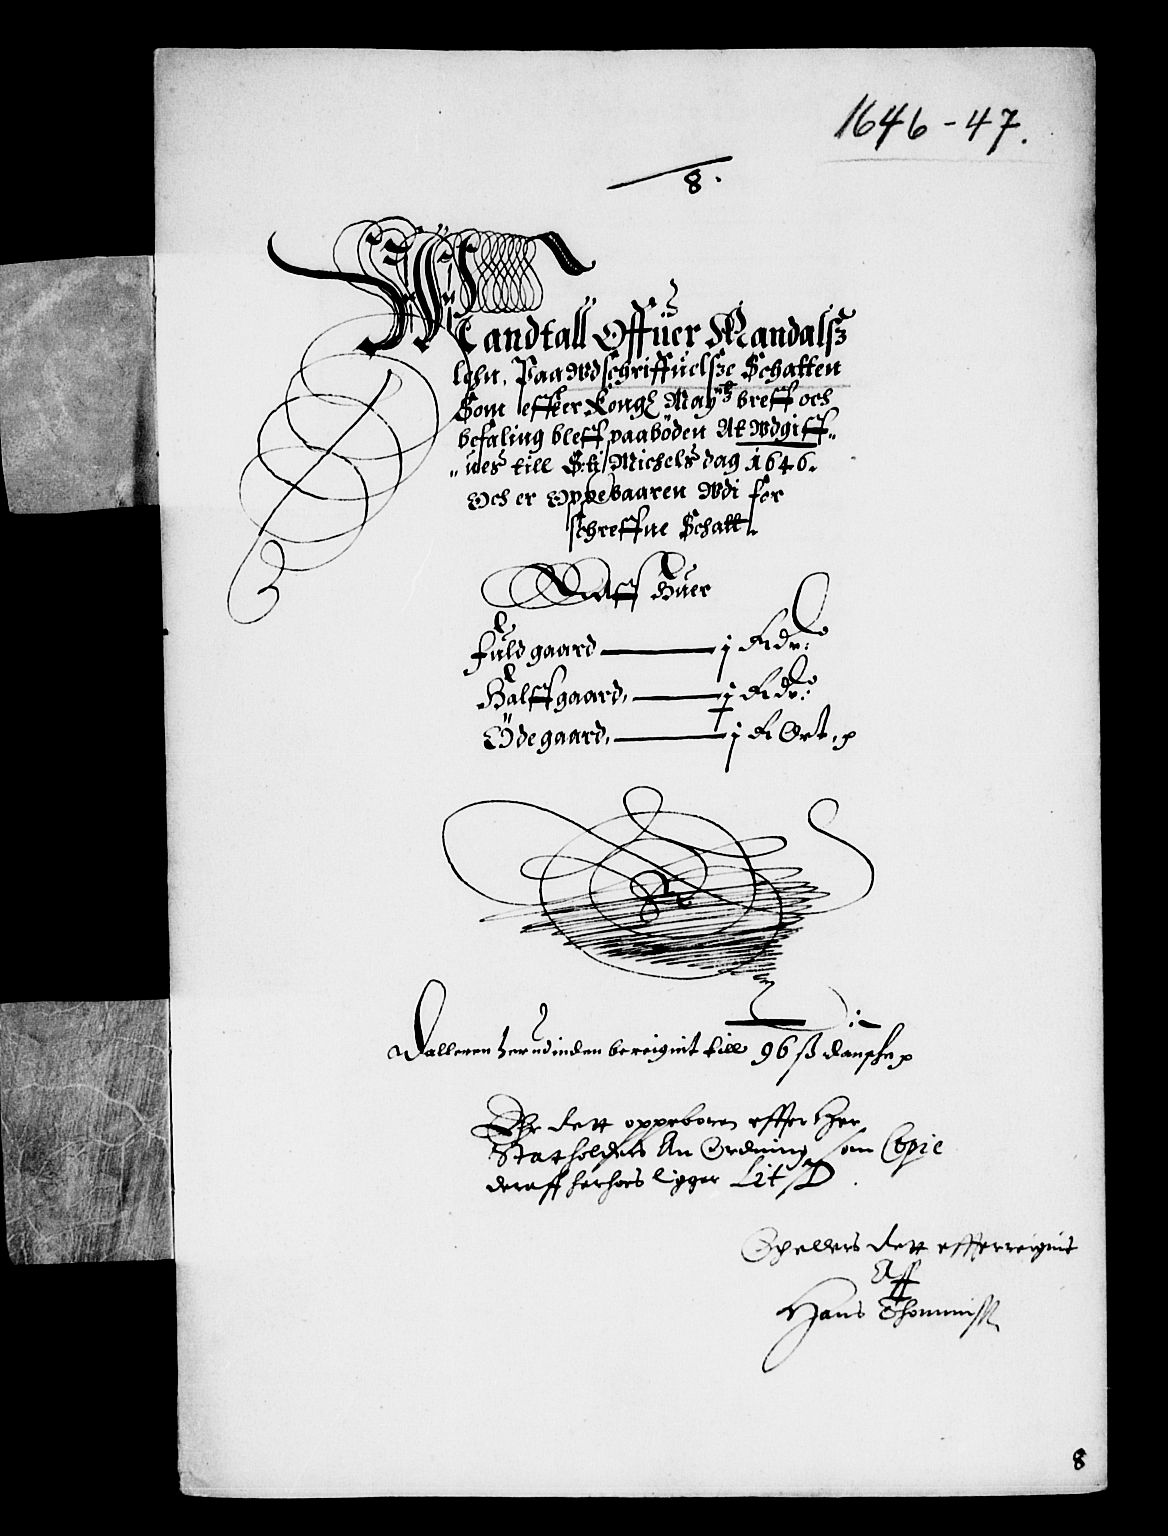 1646-47.
8.
Mandtall Offuer Mandalsz
lehn, Paa Wdschriffuelsze Schatten
Som effter Kongl Maytz breff och
befaling bleff paabøden At Wdgiff„
„ues till S:ti Michels dag 1646.
Och er Oppebaaren Wdi for
schreffne Schatt.
Aff Huer
fuldgaard — j Rdr:
Halffgaard, — j Rdr:
Ödegaard, — j R Ort.
Dalleren herudinden bereignit till 96 ß danske
Er dett oppeboren effter Her
Statholders An Ordning som Copie
deraff herhos ligger Lit D.
Ephellers dett effterreignit
Aff
Hans Thommiss
8